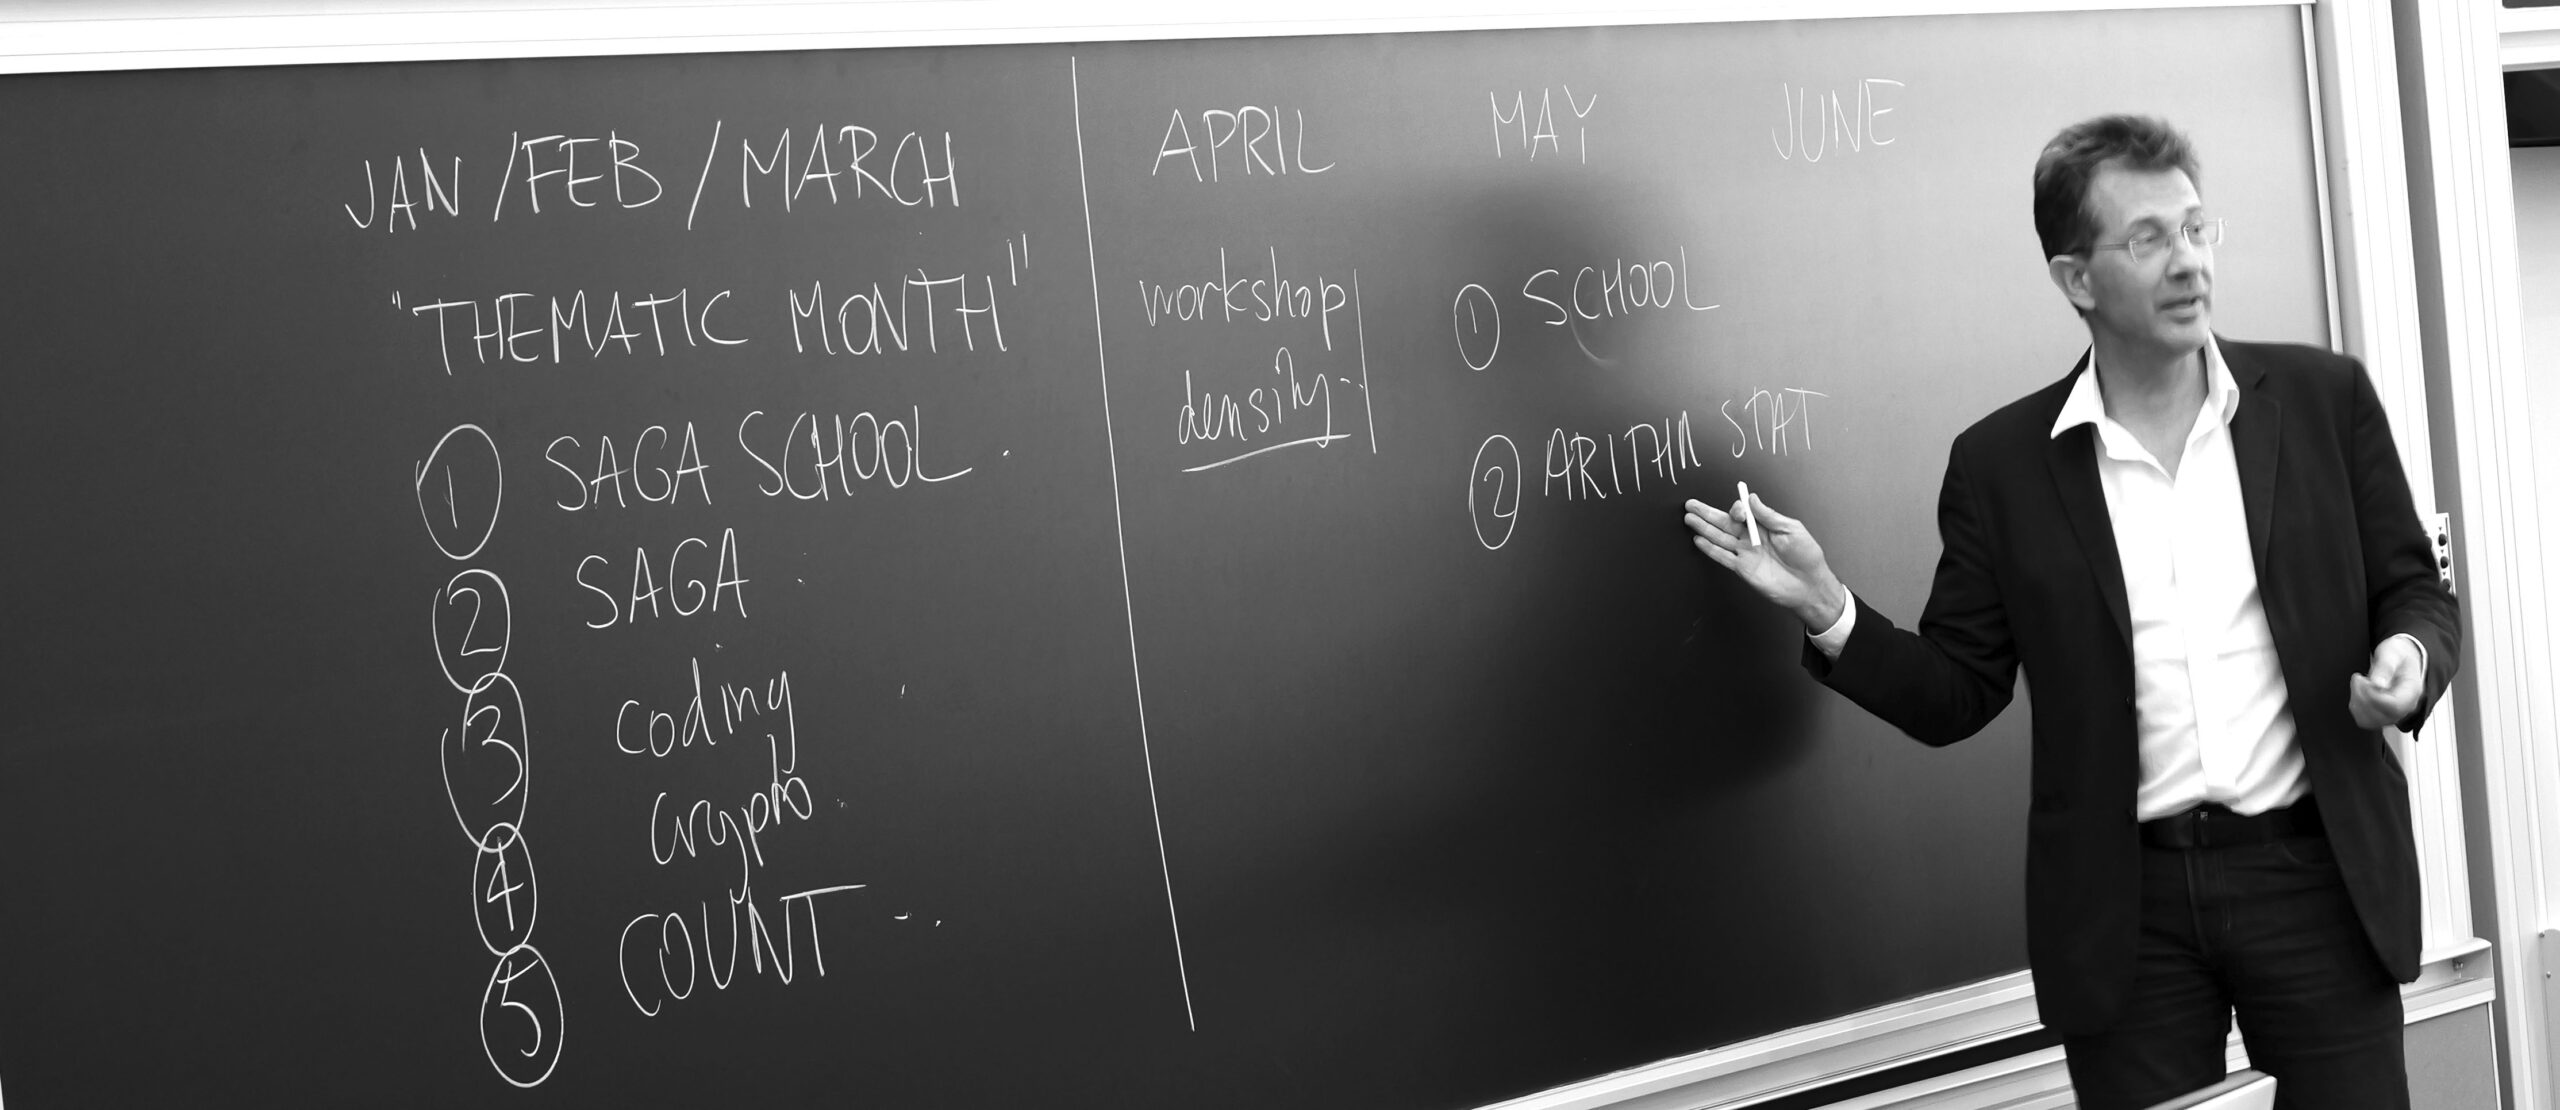 JAN / FEB / MARCH
"THEMATIC MONTH"
1 SAGA SCHOOL .
2 SAGA
3 coding
4 crypto
5 COUNT
APRIL MAY JUNE
workshop
density
1 SCHOOL
2 ARITHM STAT